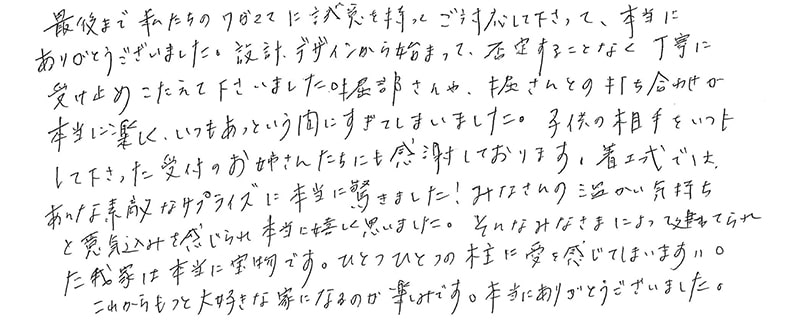 最後まで私たちのワガママに誠意を持ってご対応して下さって、本当に
ありがとうございました。設計、デザインから始まって、否定することなく丁寧に
受け止めこたえて下さいました。堀部さんや、堀さんとの打ち合わせが
本当に楽しく、いつもあっという間にすぎてしまいました。子供の相手をいつも
して下さった受付のお姉さんたちにも感謝しております。着工式では、
あんな素敵なサプライズに本当に驚きました!みなさんの温かい気持ち
と意気込みを感じられ本当に嬉しく思いました。そんなみなさまによって建てられ
た我家は本当に宝物です。ひとつひとつの柱に愛を感じてしまいます。
これからもっと大好きな家になるのが楽しみです。本当にありがとうございました。